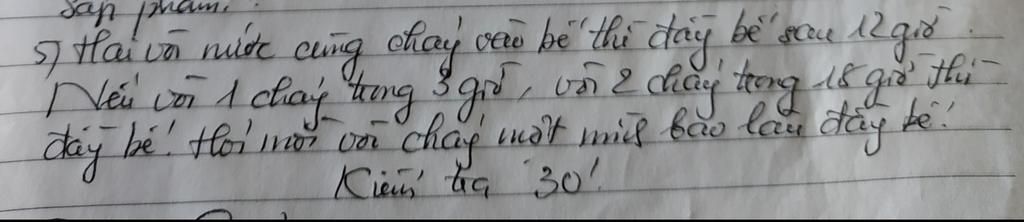 sản phẩm.
5) Hai vòi nước cùng chảy vào bể thì đầy bể sau 12 giờ.
Nếu vòi 1 chảy trong 3 giờ, vòi 2 chảy trong 18 giờ thì
đầy bể. Hỏi mỗi vòi chảy một mình bao lâu đầy bể.
Kiểm tra 30'.